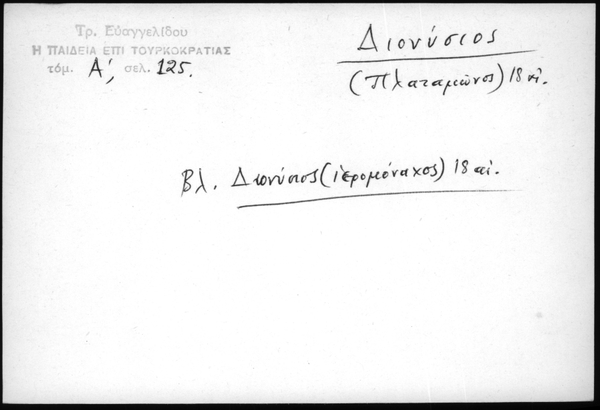 Τρ. Εὐαγγελίδου
Η ΠΑΙΔΕΙΑ ΕΠΙ ΤΟΥΡΚΟΚΡΑΤΙΑΣ
τόμ. Α΄, σελ. 125.
Διονύσιος
(Πλαταμῶνος) 18 αἰ.
Βλ. Διονύσιος (ἱερομόναχος) 18 αἰ.